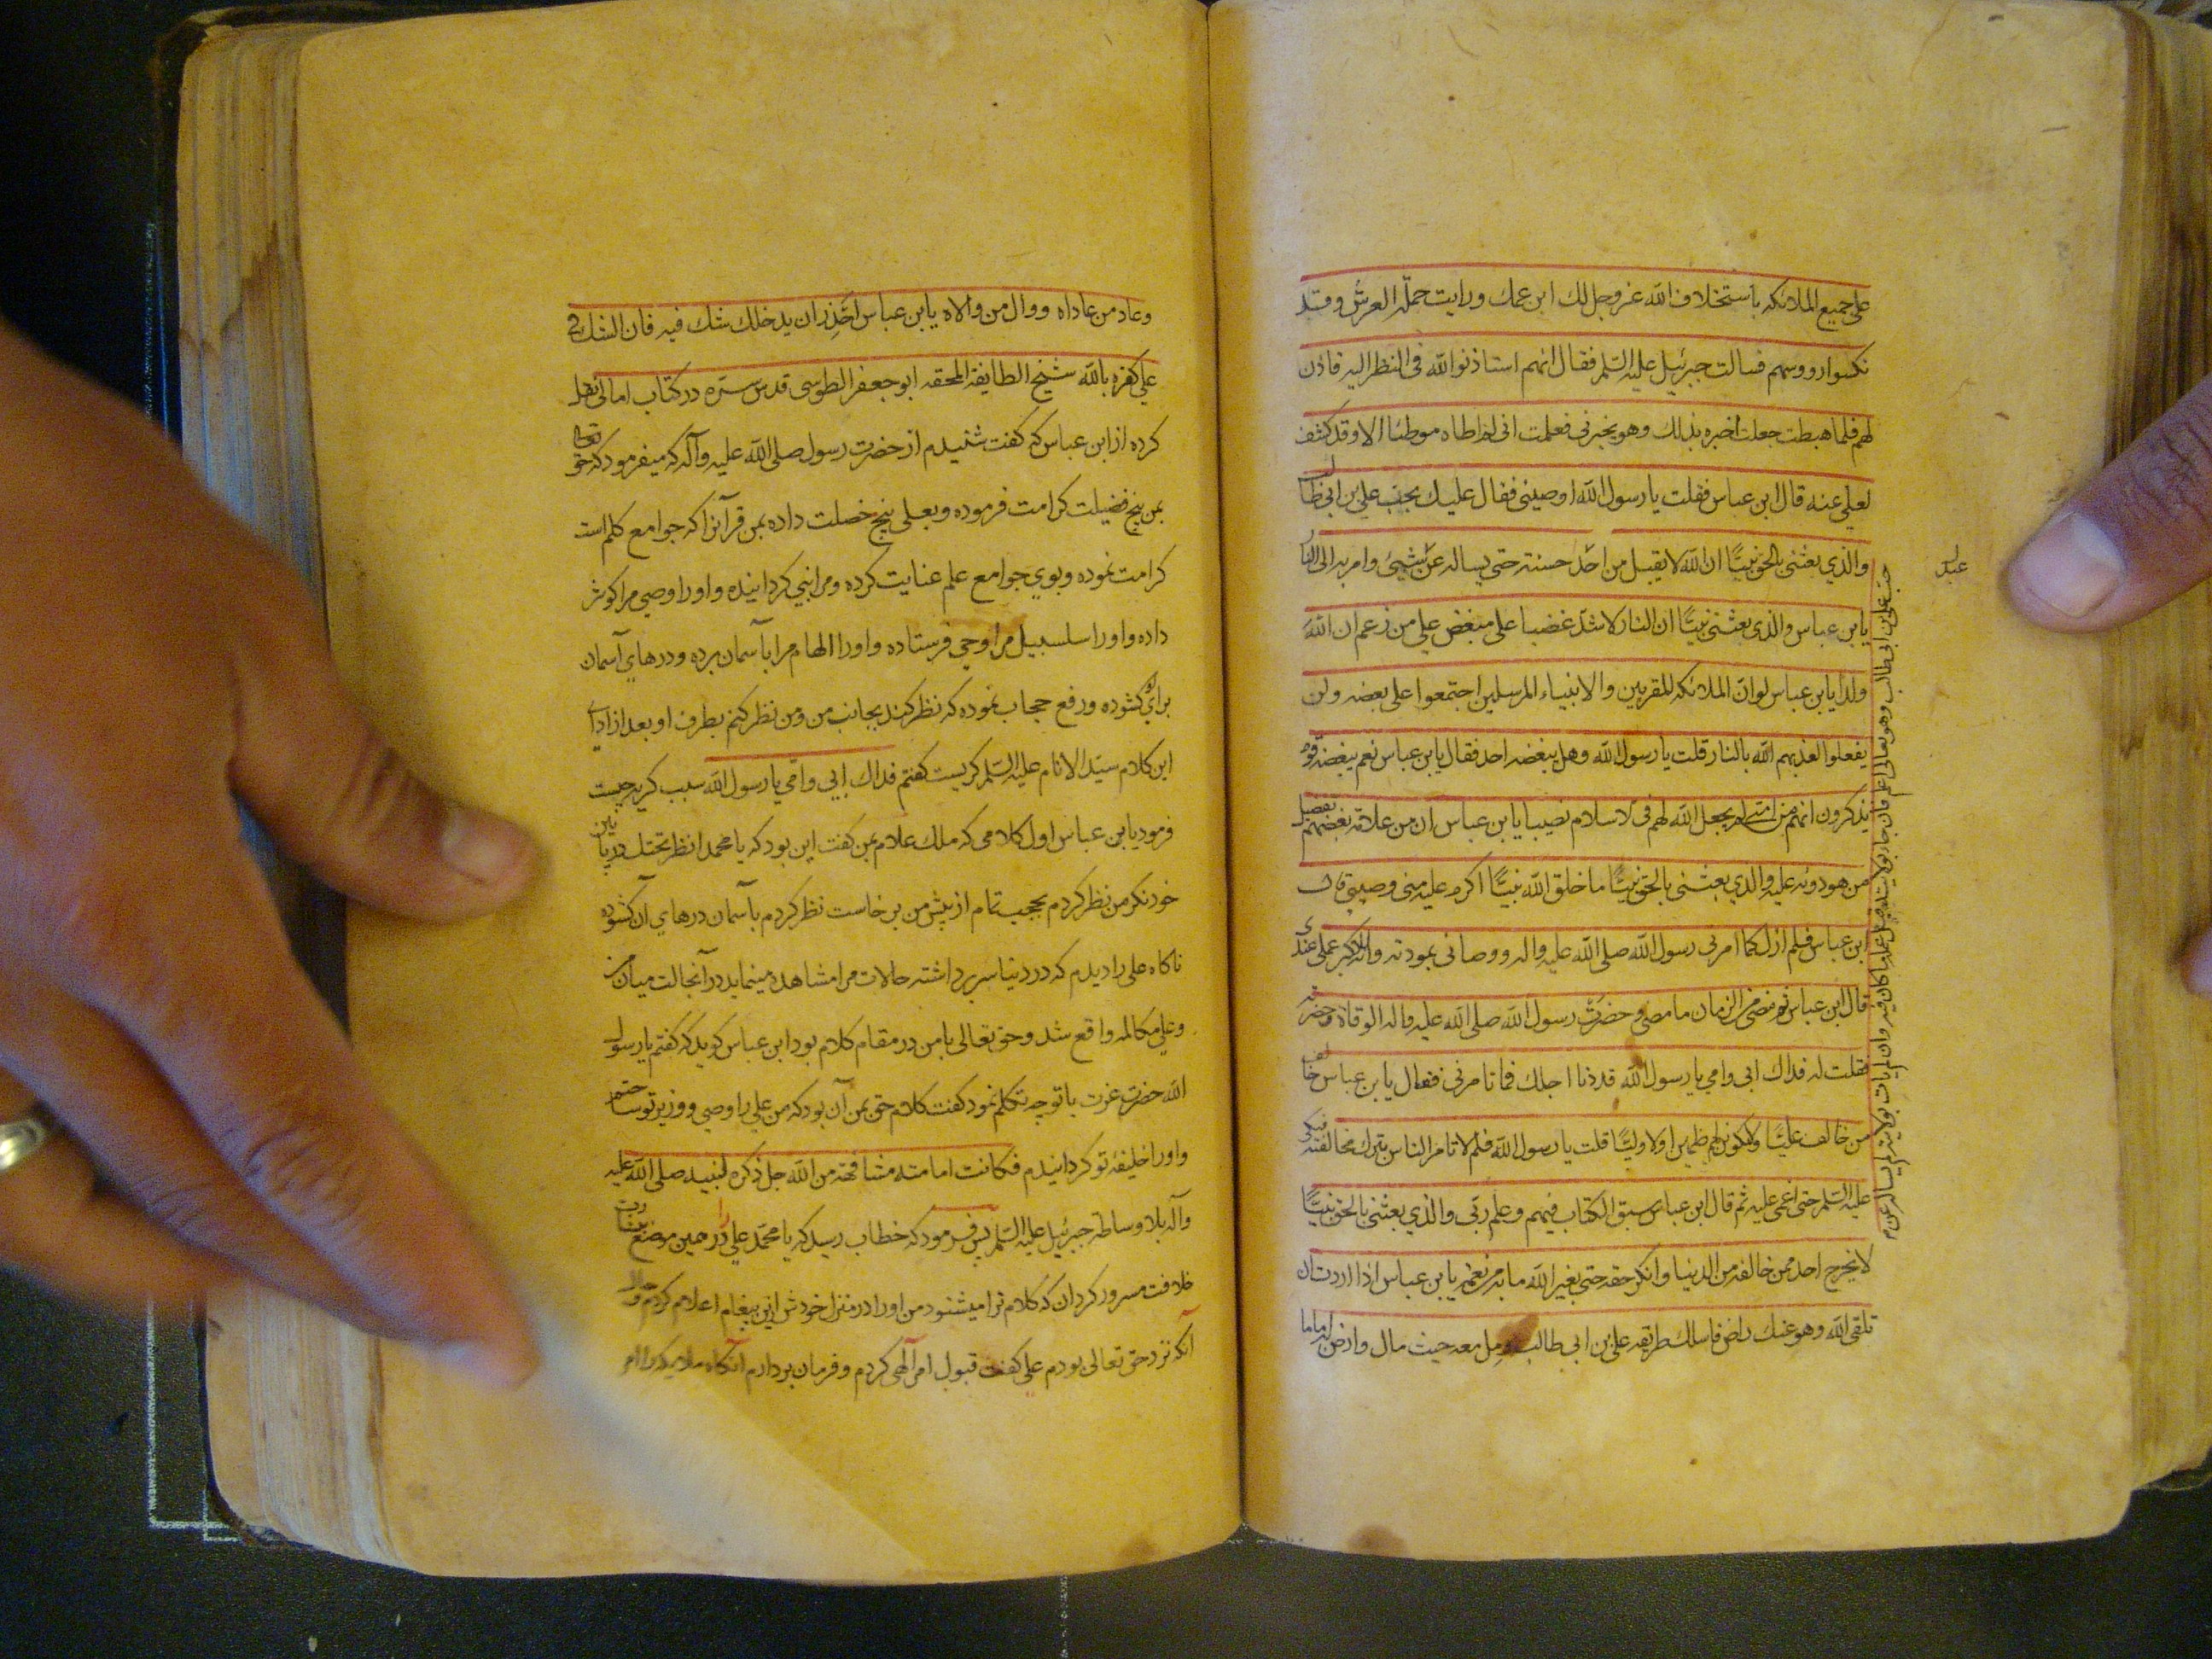 علی جمیع الملائکه باستخلاف الله عز وجل لك ابن عمك ورایت حملة العرش وقد
نکسوا رووسهم فسالت جبرئیل علیه السّلم فقال انهم استاذنوا الله فی النظر الیه فاذن
لهم فلما هبطت جعلت اخبره بذلك وهو یخبرنی فعلمت انی لم اطاه موطئا الا وقد کشف
لعلی عنه قال ابن عباس فقلت یا رسول الله اوصینی فقال علیك بحب علی بن ابی طالب
والذی بعثنی بالحق نبیًّا ان الله لا یقبل من احد حسنة حتی یساله عن
حب علی بن ابی طالب وهو تعالی اعلم فان جاء بولایته قبل عمله ما کان فیه وان لم یات بولایته لم یساله عن
شیئ وامر به الی النار
یابن عباس والذی بعثنی نبیًّا ان النار لاشدّ غضبا علی مبغض علی من زعم ان الله
ولدا یابن عباس لو انّ الملائکه المقربین والانبیاء المرسلین اجتمعوا علی بغضه ولن
یفعلوا لعذبهم الله بالنار قلت یا رسول الله وهل یبغضه احد فقال یابن عباس نعم یبغضه قوم
یذکرون انهم من امتی لم یجعل الله لهم فی الاسلام نصیبا یابن عباس ان من علامة بغضهم تفضیل
من هو دونه علیه والذی بعثنی بالحق نبیًّا ما خلق الله نبیًّا اکرم علیه منی وصیی قال
ابن عباس فلم ازل کما امرنی رسول الله صلی الله علیه واله ووصانی بمودته وانه لاکبر عملی عندی
قال ابن عباس ثم مضی من الزمان ما مضی وحضرت رسول الله صلی الله علیه واله الوفاة
فقلت له فداك ابی وامی یا رسول الله قد دنا اجلك فما تامرنی فقال یابن عباس خالف
من خالف علیًّا ولا تکونن لهم ظهیرا ولا ولیًّا قلت یا رسول الله فلم لا تامر الناس بترك مخالفته فبکی
علیه السّلم حتی اغمی علیه ثم قال ابن عباس سبق الکتاب فیهم وعلم ربّی والذی بعثنی بالحق نبیًّا
لا یخرج احد ممن خالفه من الدنیا وانکر حقه حتی یغیر الله ما به من نعمة یابن عباس اذا اردت ان
تلقی الله وهو عنك راض فاسلك طریقة علی بن ابی طالب ومِل معه حیث مال وارض به اماما
وعاد من عاداه ووال من والاه یابن عباس احذر ان یدخلك شك فیه فان الشك فی
علی کفر بالله شیخ الطایفة المحقه ابو جعفر الطوسی قدس سرّه در کتاب امالی نقل
کرده از ابن عباس که گفت شنیدم از حضرت رسول صلی الله علیه وآله که میفرمود که حق تعالی
بمن پنج فضیلت کرامت فرموده وبعلی پنج خصلت داده بمن قرآنرا که جوامع کلم است
کرامت نموده وبوی جوامع علم عنایت کرده ومرا نبی کردانیده واورا وصی مرا کوثر
داده واورا سلسبیل مرا وحی فرستاده واورا الهام مرا بآسمان برده ودرهای آسمان
برای او کشوده ورفع حجاب نموده که نظر کند بجانب من ومن نظر کنم بطرف او بعد از ادای
این کلام سیّد الانام علیه السّلم کریست کفتم فداك ابی وامّی یا رسول الله سبب کریه چیست
فرمود یابن عباس اول کلامی که ملك علام بمن کفت این بود که یا محمد انظر تحتك در پایین
خود نکر من نظر کردم حجب تمام از پیش من برخاست نظر کردم بآسمان درهای آن کشوده
ناکاه علی را دیدم که در دنیا سر برداشته حالات مرا مشاهده مینماید در آنحالت میان من
وعلی مکالمه واقع شد وحق تعالی با من در مقام کلام بود ابن عباس کوید که کفتم یا رسول
الله حضرت عزت با تو چه تکلم نمود کفت کلام حق بمن آن بود که من علی را وصی ووزیر تو ساختم
واورا خلیفهٔ تو کردانیدم فکانت امامته مشافهة من الله جل ذکره لنبیه صلی الله علیه
وآله بلا وساطة جبرئیل علیه السّلم پس فرمود که خطاب رسید که یا محمّد علی را در همین موضع بشارت
خلافت مسرور کردان که کلام ترا میشنود من اورا در منزل خودش ازین پیغام اعلام کردم وحال
آنکه نزد حق تعالی بودم علی کفت قبول امر الهی کردم وفرمان بردارم